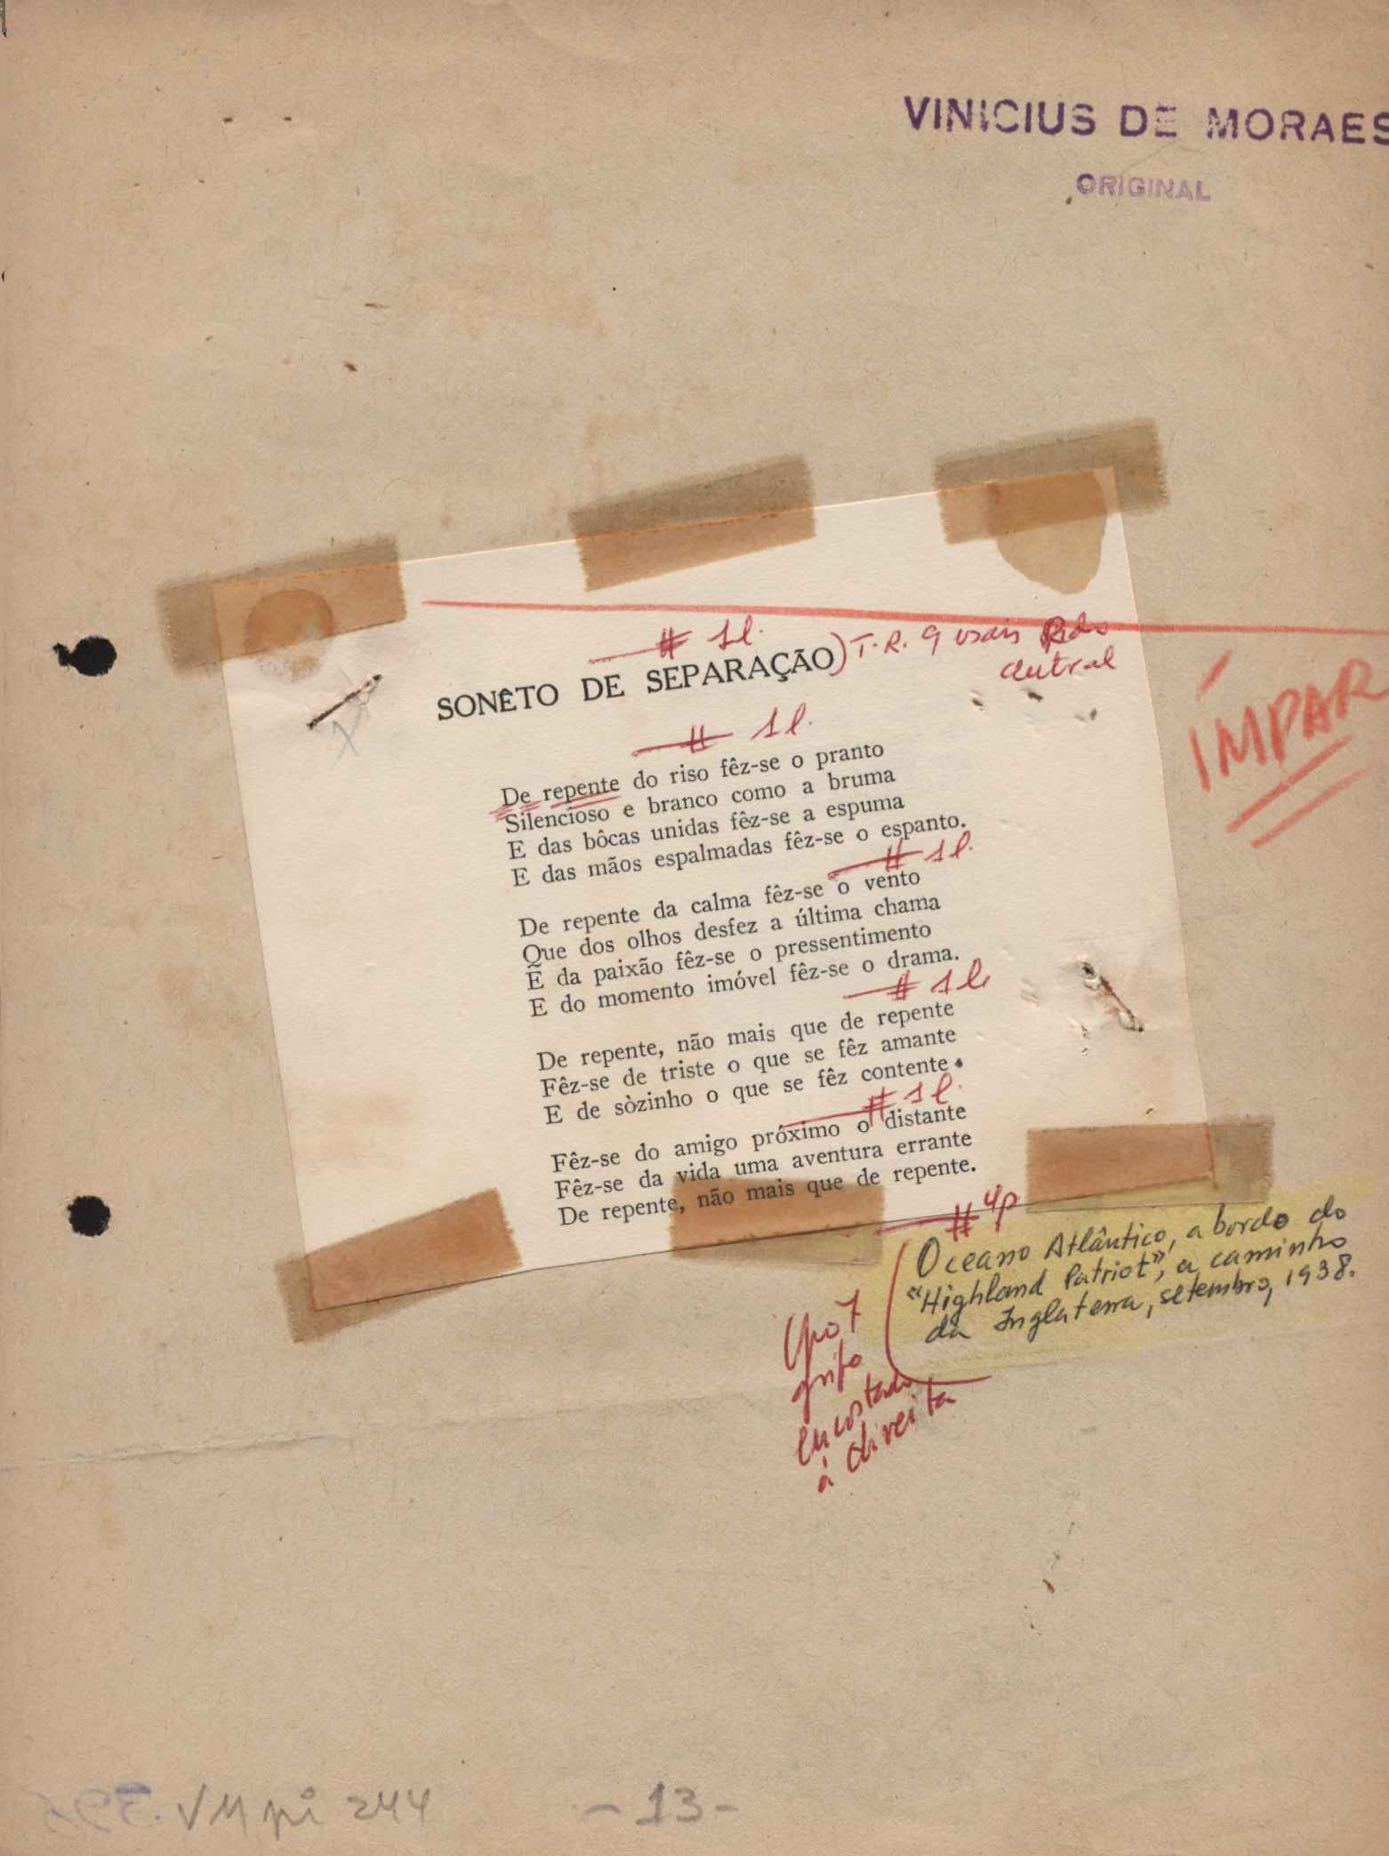 VINICIUS DE MORAES
ORIGINAL
# 1l.
SONÊTO DE SEPARAÇÃO) T.R. 9
central
ÍMPAR
# 1l.
De repente do riso fêz-se o pranto
Silencioso e branco como a bruma
E das bôcas unidas fêz-se a espuma
E das mãos espalmadas fêz-se o espanto.
# 1l.
De repente da calma fêz-se o vento
Que dos olhos desfez a última chama
E da paixão fêz-se o pressentimento
E do momento imóvel fêz-se o drama.
# 1l.
De repente, não mais que de repente
Fêz-se de triste o que se fêz amante
E de sòzinho o que se fêz contente.
# 1l.
Fêz-se do amigo próximo o distante
Fêz-se da vida uma aventura errante
De repente, não mais que de repente.
# 4p
Oceano Atlântico, a bordo do
"Highland Patriot", a caminho
da Inglaterra, setembro, 1938.
grifo
encostado
à direita
VMpi 244
-13-